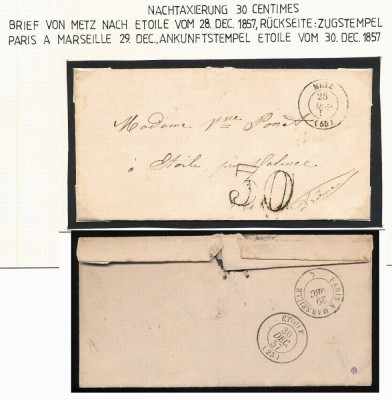 NACHTAXIERUNG 30 CENTIMES
BRIEF VON METZ NACH ETOILE VOM 28. DEC. 1857, RÜCKSEITE: ZUGSTEMPEL
PARIS A MARSEILLE 29. DEC., ANKUNFTSTEMPEL ETOILE VOM 30. DEC. 1857
METZ
28
(55)
Madame
à Etoile
30
PARIS A MARSEILLE
29
DEC
ETOILE
30
DEC
57
(25)